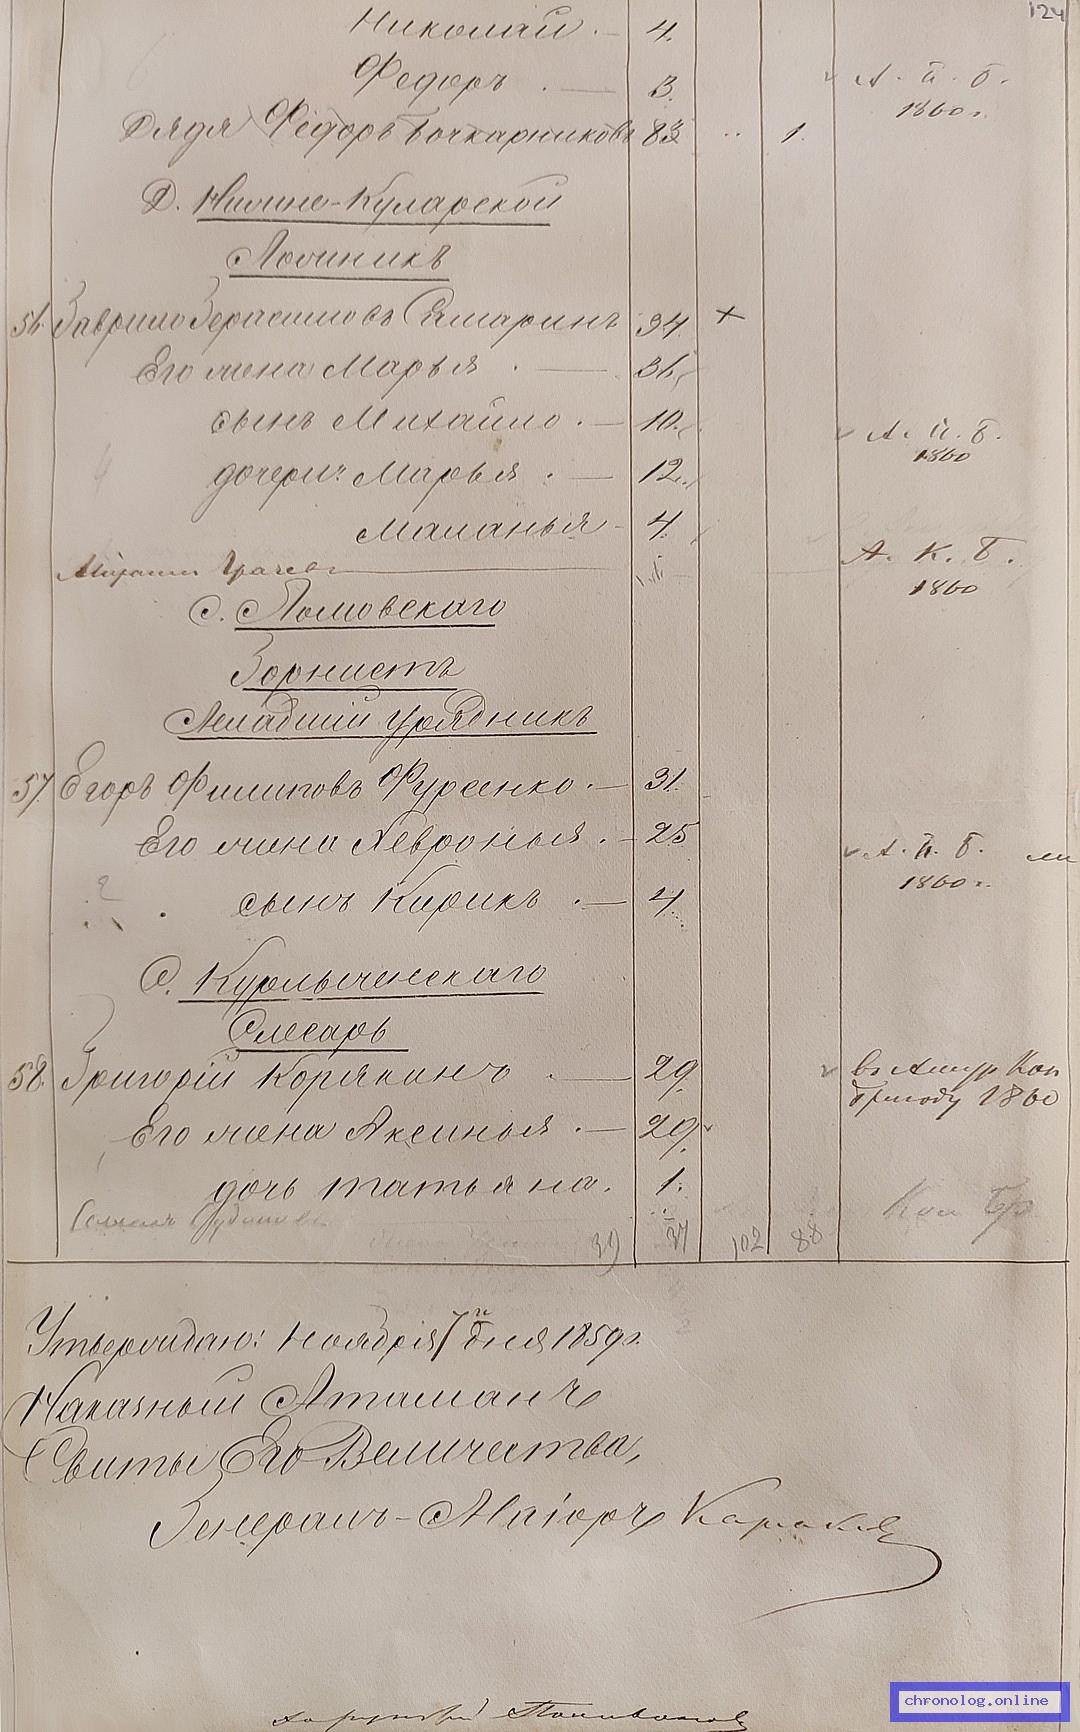 124
Николай. — 4.
Федоръ. — 3. А. п. б.
1860 г.
Дядя Федоръ Бочкарниковъ 83 " 1.
Д. Нижне-Куларской
Ложникъ
56. Гаврило Герасимовъ Самаринъ 34. +
Его жена Марья. — 36.
сынъ Михайло. — 10. А. п. б.
1860
дочери: Марья. — 12.
Маланья - 4.
А. К. Б.
1860
Грачевъ
С. Ломовскаго
Горнистъ
Младшій Урядникъ
57. Егоръ Филиповъ Фурсенко. — 31.
Его жена Хевронья. — 25
А. п. б.
1860 г.
сынъ Кирикъ. — 4.
С. Курлыченскаго
Слесарь
58. Григорій Корякинъ. — 29. въ Амур Кон
бригаду 1860
Его жена Аксинья. — 29.
дочь Татьяна. 1.
Кон Бр
39 37 102 88
Утверждаю: Ноября 7 дня 1859 г.
Наказный Атаманъ
Свиты Его Величества,
Генералъ-Маіоръ
хорунжій
chronolog.online